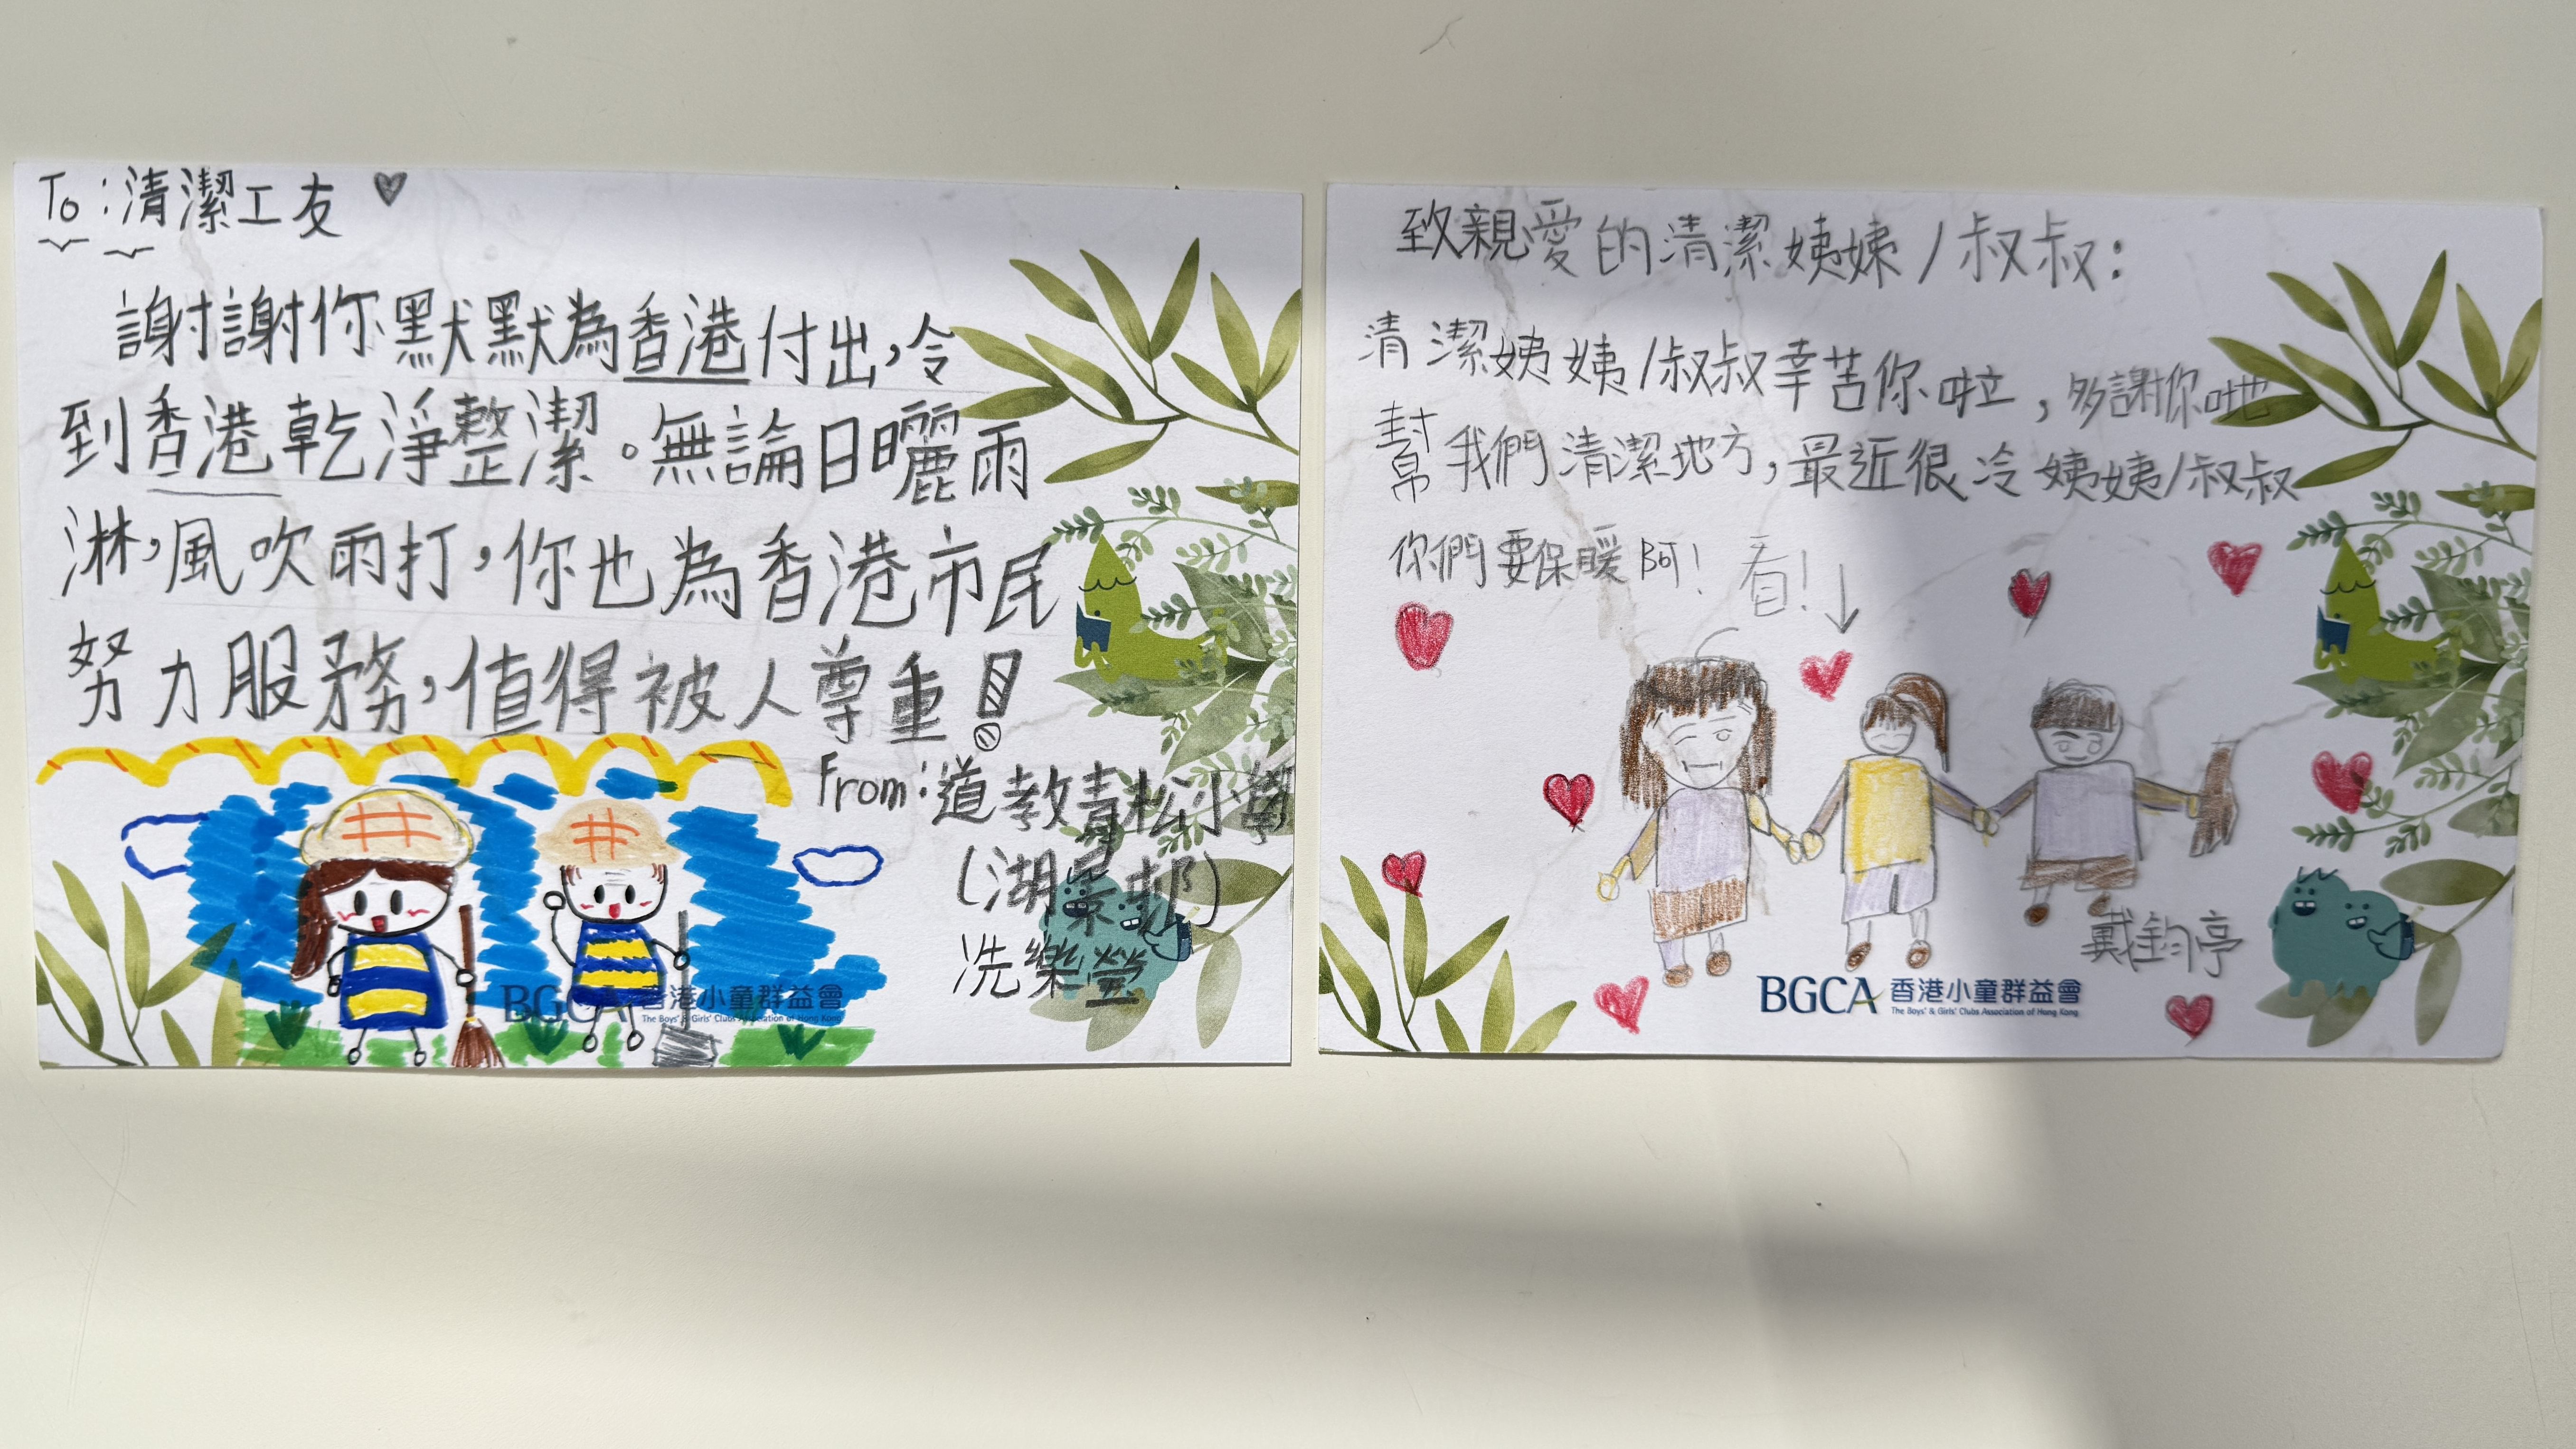 To:清潔工友
謝謝你默默為香港付出,令
到香港乾淨整潔。無論日曬雨
淋,風吹雨打,你也為香港市民
努力服務,值得被人尊重!
From:道教青松小學
(湖景邨)
冼樂瑩
BGCA 香港小童群益會
The Boys' & Girls' Clubs Association of Hong Kong
致親愛的清潔姨姨/叔叔:
清潔姨姨/叔叔幸苦你啦,多謝你哋
幫我們清潔地方,最近很冷姨姨/叔叔
你們要保暖阿!看!↓
戴鈞亭
BGCA 香港小童群益會
The Boys' & Girls' Clubs Association of Hong Kong